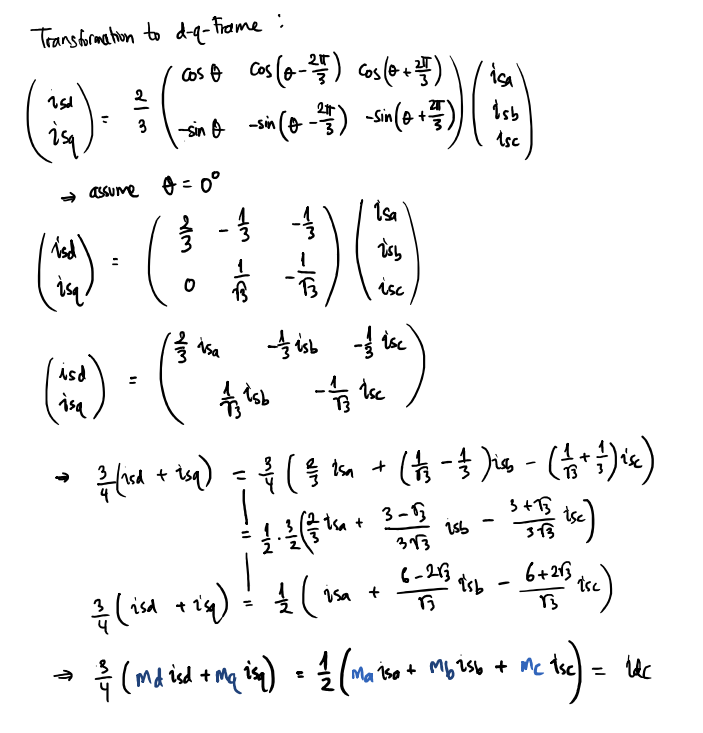 Transformation to d-q-Frame :
(isd isq) = 2/3 (cos θ cos(θ - 2π/3) cos(θ + 2π/3) -sin θ -sin(θ - 2π/3) -sin(θ + 2π/3)) (isa isb isc)
⇒ assume θ = 0°
(isd isq) = (2/3 -1/3 -1/3 0 1/√3 -1/√3) (isa isb isc)
(isd isq) = (2/3 isa -1/3 isb -1/3 isc 1/√3 isb -1/√3 isc)
→ 3/4 (isd + isq) = 3/4 (2/3 isa + (1/√3 - 1/3) isb - (1/√3 + 1/3) isc)
= 1/2 · 3/2 (2/3 isa + (3-√3)/(3√3) isb - (3+√3)/(3√3) isc)
3/4 (isd + isq) = 1/2 (isa + (6-2√3)/√3 isb - (6+2√3)/√3 isc)
⇒ 3/4 (md isd + mq isq) = 1/2 (ma isa + mb isb + mc isc) = idc